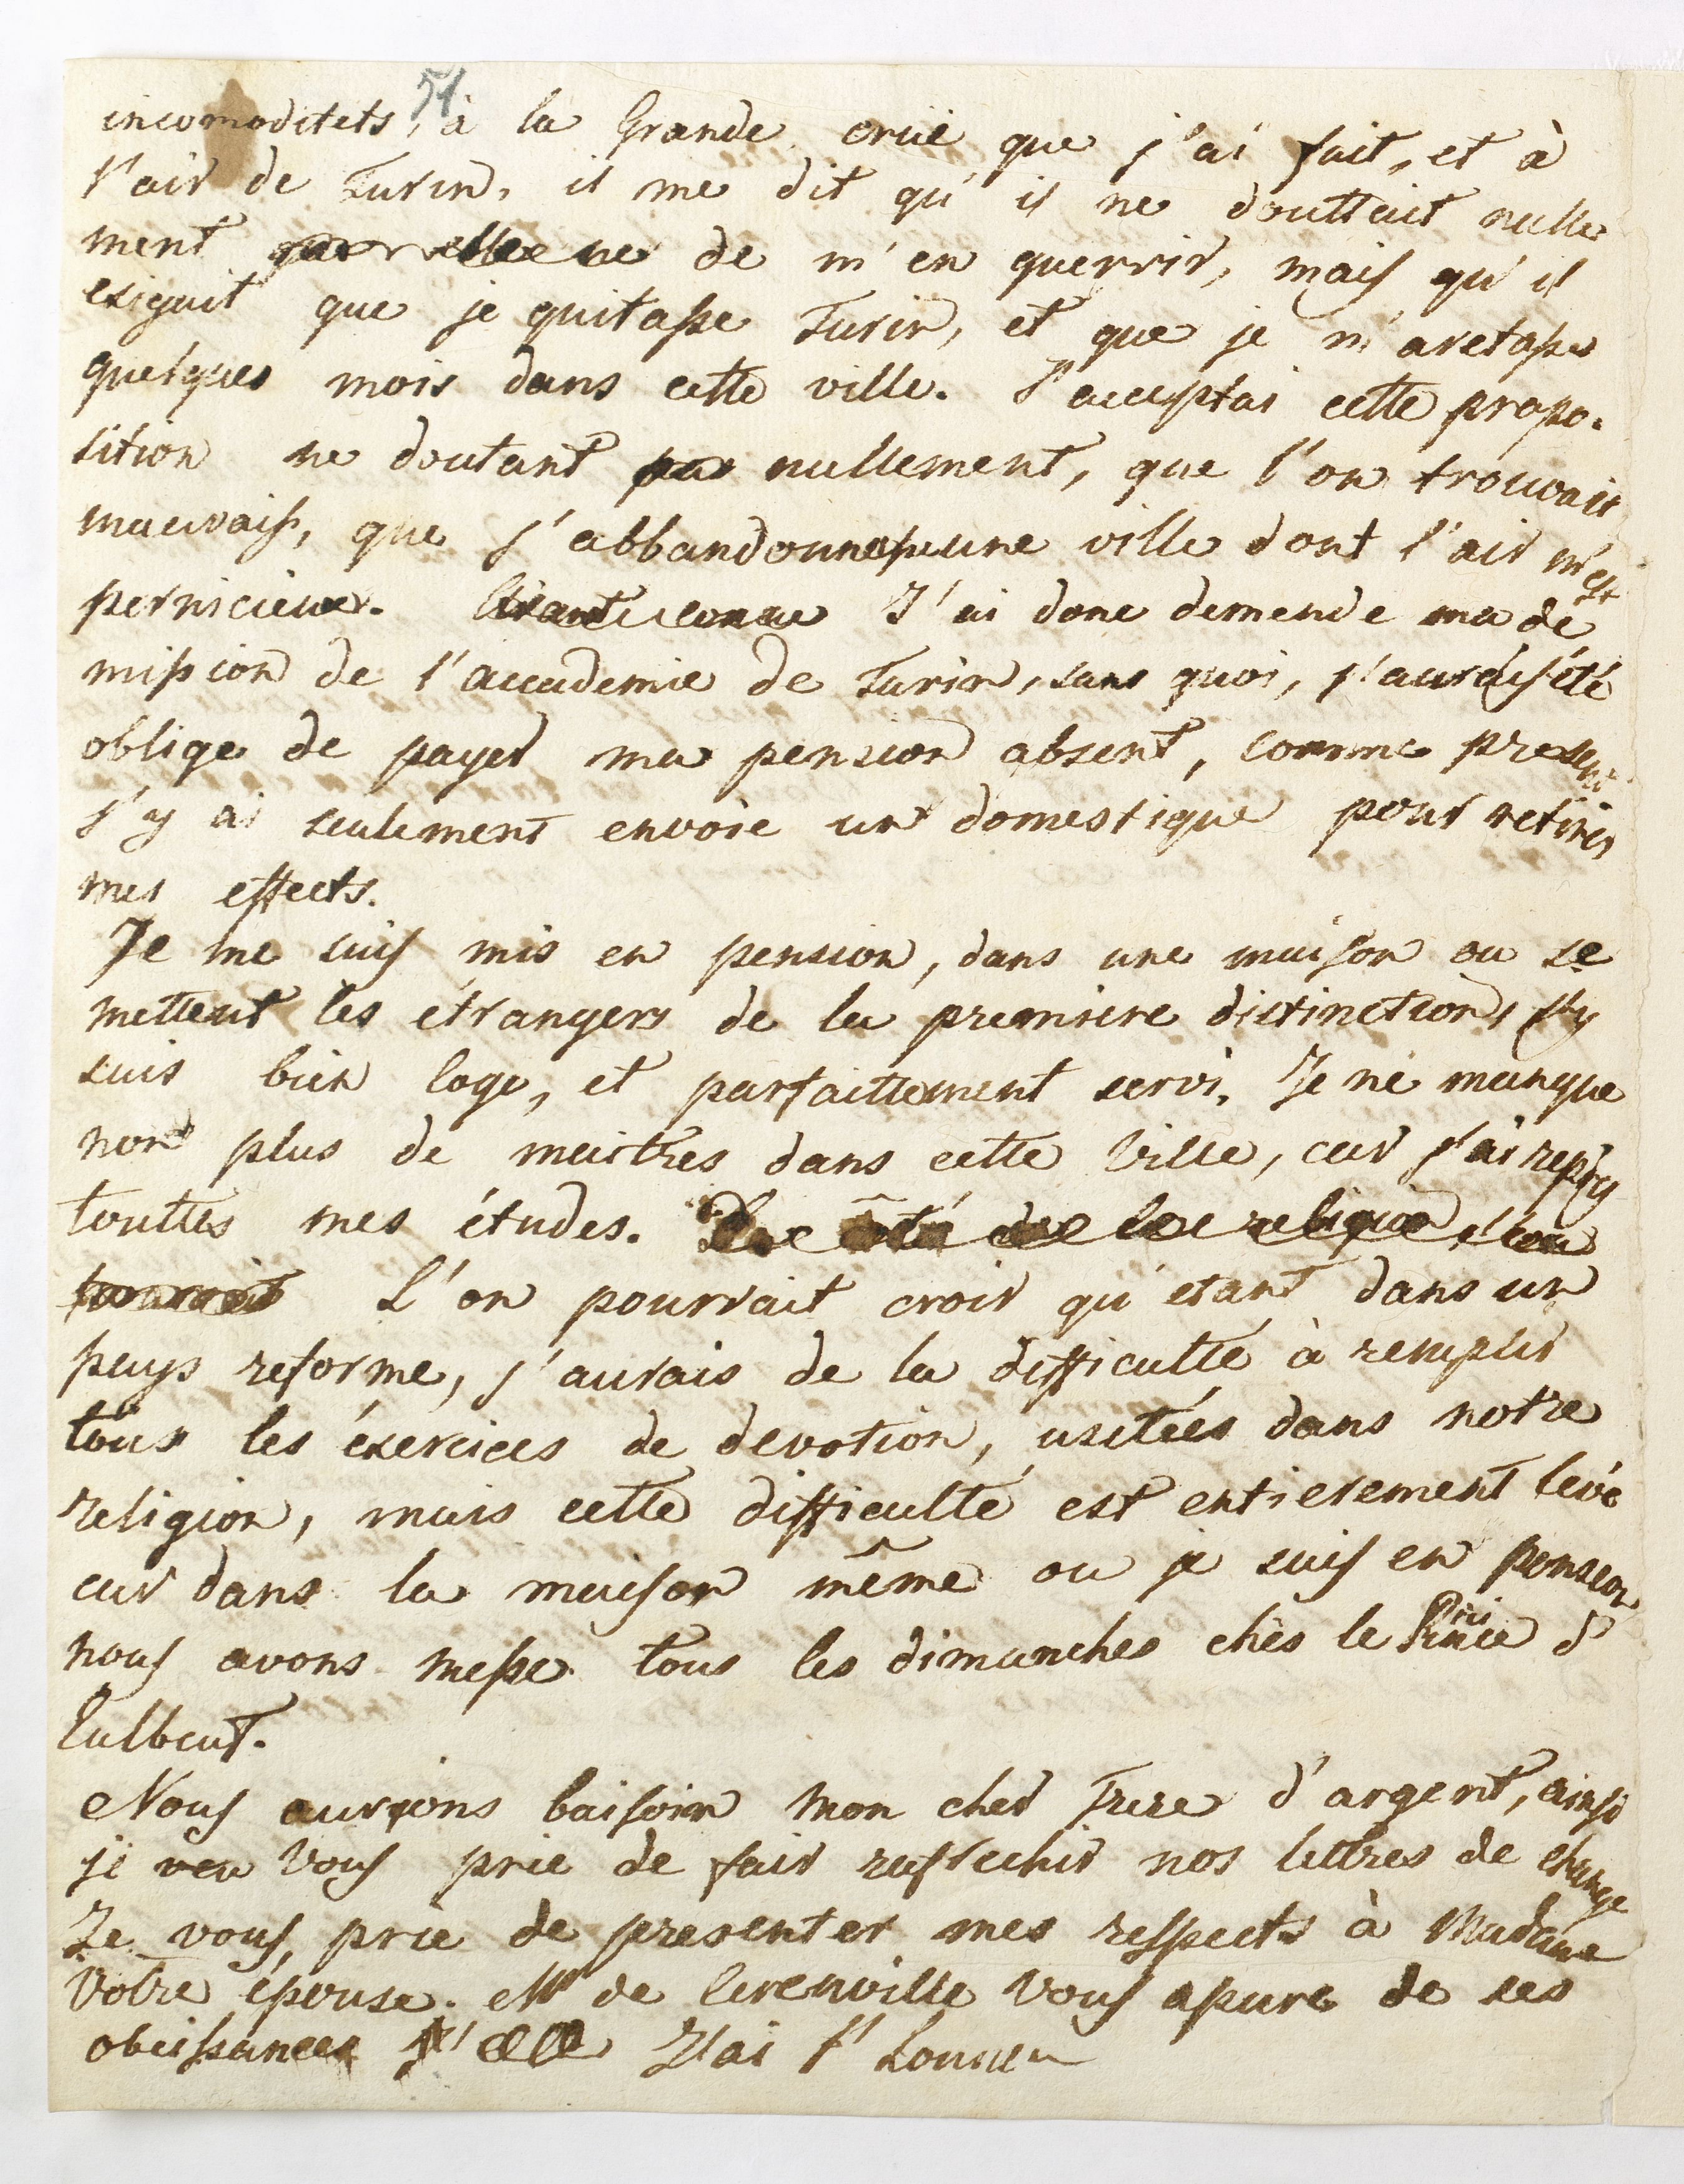 51
incomoditets, à la Grande crüe que j'ai fait, et à
l'air de Turin, il me dit qu'il ne douttait nulle
ment de m'en guerrir, mais qu'il
exigait que je quitasse Turin, et que je m'aretasse
quelques mois dans cette ville. J'acceptai cette propo-
sition ne doutant pas nullement, que l'on trouvait
mauvais, que j'abbandonnasse une ville dont l'air m'est
pernicieux. J'ai donc demende ma dé
mission de l'accademie de Turin, sans quoi, j'aurais été
oblige de payer ma pension absent, comme present
j'y ai seulement envoie un domestique pour retirer
mes effects.
Je me suis mis en pension, dans une maison ou se
mettent les étrangers de la premiere distinction, j'y
suis bien loge, et parfaittement servi. Je ne manque
non plus de maitres dans cette ville, car j'ai repris
touttes mes études. De côté de la religion l'on
pourrait L'on pourrait croir qu'etant dans un
pays reforme, j'aurais de la difficulte à remplir
tous les éxercices de devotion, usitées dans notre
religion, mais cette difficulté est entierement levé
car dans la maison même ou je suis en pension
nous avons messe tous les dimanches chès le Prince d
Nous aurions baisoin mon cher Frere d'argent, ainsi
je vous prie de fair refflechir nos lettres de change
Je vous prie de presenter mes respects à Madame
Votre épouse. Mr de Cerenville vous assure de ses
obeissances J'ai l'honneur